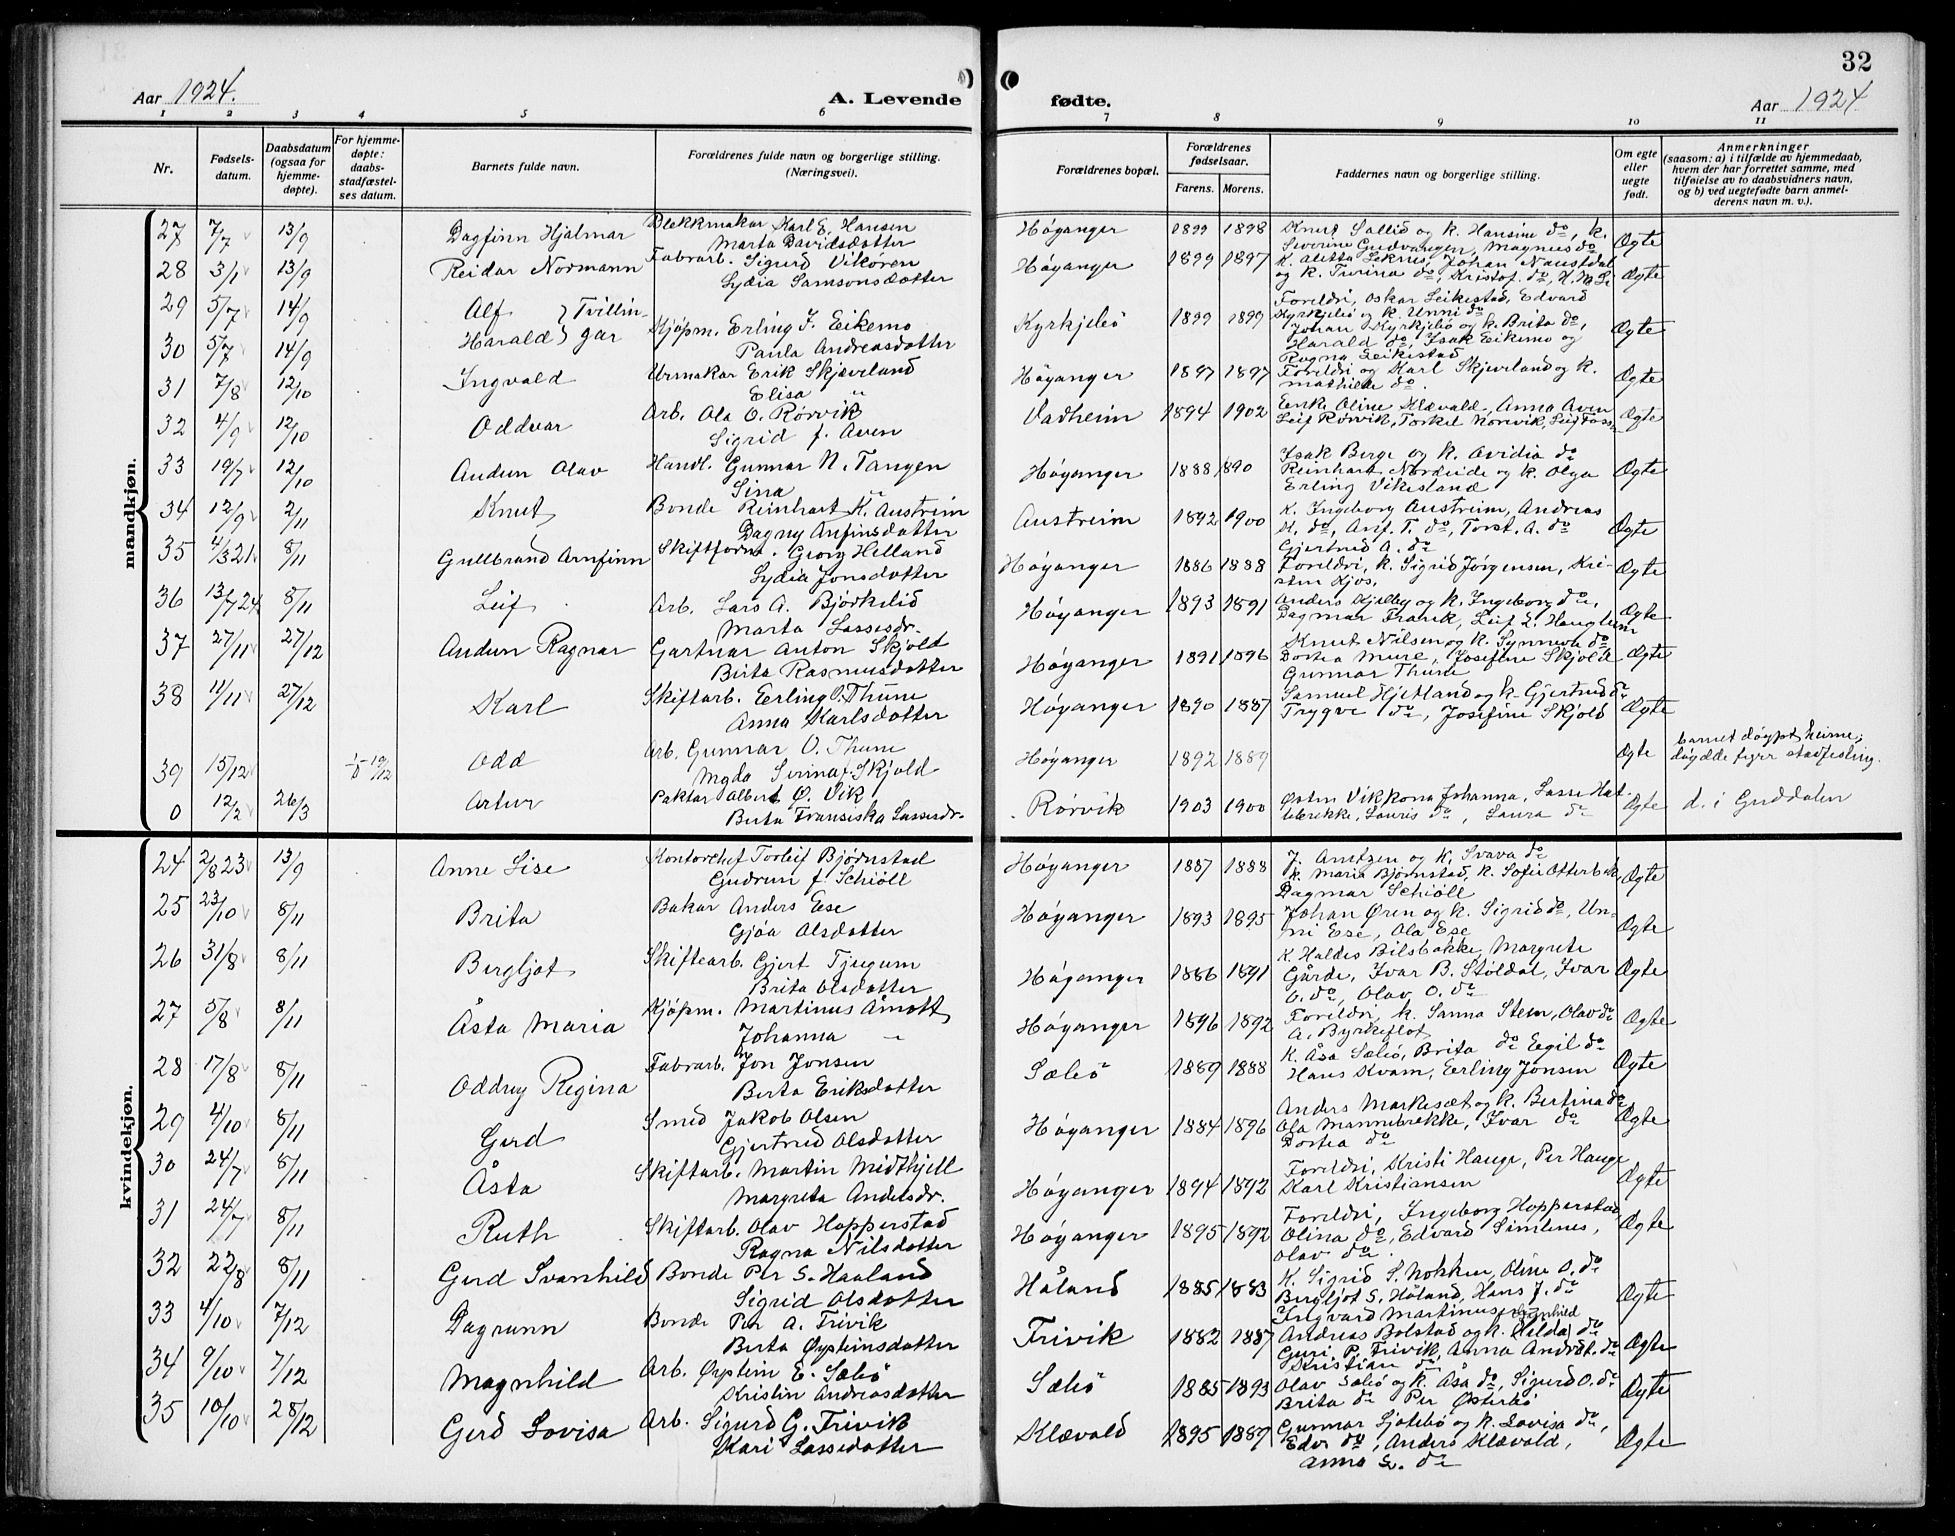 32
Aar 1924.
A. Levende
fødte.
Aar 1924
1 2 3 4 5 6 7 8 9 10 11
Nr.
Fødsels-
datum.
Daabsdatum
(ogsaa for
hjemme-
døpte).
For hjemme-
døpte:
daabs-
stadfæstel-
ses datum.
Barnets fulde navn.
Forældrenes fulde navn og borgerlige stilling.
(Næringsvei).
Forældrenes bopæl.
Forældrenes
fødselsaar.
Farens. Morens.
Faddernes navn og borgerlige stilling.
Om egte
eller
uegte
født.
Anmerkninger
(saasom: a) i tilfælde av hjemmedaab,
hvem der har forrettet samme, med
tilføielse av to daabsvidners navn,
og b) ved uegtefødte barn anmel-
derens navn m. v.).
mandkjøn.
27 7/7 13/9 Dagfinn Hjalmar Blekkmakar Karl E. Hansen Høyanger 1899 1898 Knut Sallid og k. Hansine do, k. Ægte
Marta Davidsdotter Severine Gudvangen, Magnus do
28 3/1 13/9 Reidar Normann Fabrarb. Sigurd Vikøren Høyanger 1899 1897 k. Aletta Leknes, Johan Naustdal Ægte
Lydia Samsonsdotter og k. do, Kristof. do,
29 5/7 14/9 Alf } Tvillin- Foreldri, Oskar Leikestad, Edvard
30 5/7 14/9 Harald } gar Kjøpm. Erling J. Eikemo Kyrkjebø 1899 1899 Kyrkjebø og k. Unni do Ægte
Paula Andreasdotter Johan Kyrkjebø og k. Brita do,
Harald do, Isak Eikemo og
Ragna Leikestad
31 7/8 12/10 Ingvald Urmakar Erik Skjæveland Høyanger 1897 1897 Foreldri og Karl Skjeveland og k. Ægte
Elisa " Mathilde do.
32 4/9 12/10 Oddvar Arb. Ola O. Rørvik Vadheim 1894 1902 Enk. Oline Klævold, Anna Aven Ægte
Sigrid f. Aven Leif Rørvik, Torkel Norevik, Leif
33 19/7 12/10 Audun Olav Handl. Gunnar N. Tangen Høyanger 1888 1890 Isak Berge og k. Avidia do Ægte
Sina " Reinhart Nordeide og k. Olga
Erling Vikesland
34 12/9 2/11 Knut Bonde Reinhart K. Austreim Austreim 1892 1900 k. Ingeborg Austreim, Andreas Ægte
Dagny Anfinsdotter K. do, Anf. T. do, Torst. A. do
Gjertrud A. do
35 4/3 21 8/11 Gullbrand Arnfinn Skiftform. Georg Helland Høyanger 1886 1888 Foreldri, k. Sigrid Jørgensen, Kri- Ægte
Lydia Jonsdotter sten Kjos.
36 13/7 24 8/11 Leif Arb. Lars A. Bjørkelid Høyanger 1893 1891 Anders Kjelby og k. Ingeborg do, Ægte
Marta Lassesdr. Dagmar Frarik, Leif L. Haugheim
37 27/11 27/12 Audun Ragnar Gartnar Anton Skjold Høyanger 1891 1896 Knut Nilsen og k. Synneva do Ægte
Birta Rasmusdotter Dortea Mure, Josefine Skjold
Gunnar Thune
38 11/11 27/12 Karl Skiftarb. Erling O. Thune Høyanger 1890 1887 Samuel Hjetland og k. Gjertrud do Ægte
Anna Karlsdotter Trygve do, Josefine Skjold
39 15/12 19/12 Odd Arb. Gunnar O. Thune Høyanger 1892 1889 Ægte barnet døypt heime;
Magda Serina f. Skjold døydde fyrr stadfesting.
0 12/2 26/3 Artur Paktar Albert Ø. Vik Rørvik 1903 1900 Østen Vik kona Johanna, Lasse Hat- Ægte d. i Guddalen
Berta Fransiska Lassesdr. lebrekke, Lauris do, Laura do
kvindekjøn.
24 2/8 23 13/9 Anne Lise Kontorchef Torleif Bjørnstad Høyanger 1887 1888 J. Arntzen og k. Svava do Ægte
Gudrun f Schiøll k. Maria Bjørnstad, k. Sofie Otterbek
Dagmar Schiøll
25 23/10 8/11 Brita Bakar Anders Ese Høyanger 1893 1895 Johan Øren og k. Sigrid do, Un- Ægte
Gjøa Olsdotter ni Ese, Ola Ese
26 31/8 8/11 Bergljot Skiftearb. Gjert Tjugum Høyanger 1886 1891 k. Haldis Bilsbakke, Margrete Ægte
Brita Olsdotter Gårde, Ivar B. Støldal, Ivar
O. do, Olav O. do
27 5/8 8/11 Åsta Maria Kjøpm. Martinus Åmott Høyanger 1896 1892 Foreldri, k. Sanna Stein, Olav do Ægte
Johanna " A. Byrkeflot
28 17/8 8/11 Oddny Regina Fabrarb. Jon Jonsen Sæbø 1889 1888 k. Åsa Sæbø, Brita do Egil do Ægte
Berta Eriksdotter Hans Kvam, Erling Jonsen
29 4/10 8/11 Gerd Smed Jakob Olsen Høyanger 1884 1896 Anders Markeset og k. Bertina do Ægte
Gjertrud Olsdotter Ola Mannebrekke, Ivar do
Dortea do
30 24/7 8/11 Åsta Skiftarb. Martin Midthjell Høyanger 1894 1892 Foreldri, Kristi Hauge, Per Hauge Ægte
Margreta Andersdr. Karl Kristiansen
31 24/7 8/11 Ruth Skiftarb. Olav Hopperstad Høyanger 1895 1892 Foreldri, Ingeborg Hopperstad Ægte
Ragna Nilsdotter Olina do, Edvard Simlenes,
Olav do.
32 22/8 8/11 Gerd Svanhild Bonde Per S. Haaland Håland 1885 1883 k. Sigrid S. Nokken, Oline O. do Ægte
Sigrid Olsdotter Bergljot S. Håland, Hans J. do
Ingvard Martinusen
33 4/10 7/12 Dagrunn Bonde Per A. Trivik Trivik 1882 1887 Andreas Bolstad og k. Hilda do Ægte
Berta Øysteinsdotter Guri P. Trivik, Anna Andr. do
Kristian do
34 9/10 7/12 Magnhild Arb. Øystein E. Sæbø Sæbø 1885 1893 Olav Sæbø og k. Åsa do, Sigurd O. do Ægte
Kristin Andreasdotter Brita do Per Østerbø
35 10/10 28/12 Gerd Lovisa Arb. Sigurd G. Trivik Klævold 1895 1889 Gunnar Sjolebø og k. Lovisa do, Ægte
Kari Lassedotter Edv. do, Anders Klævold,
Anna L. do